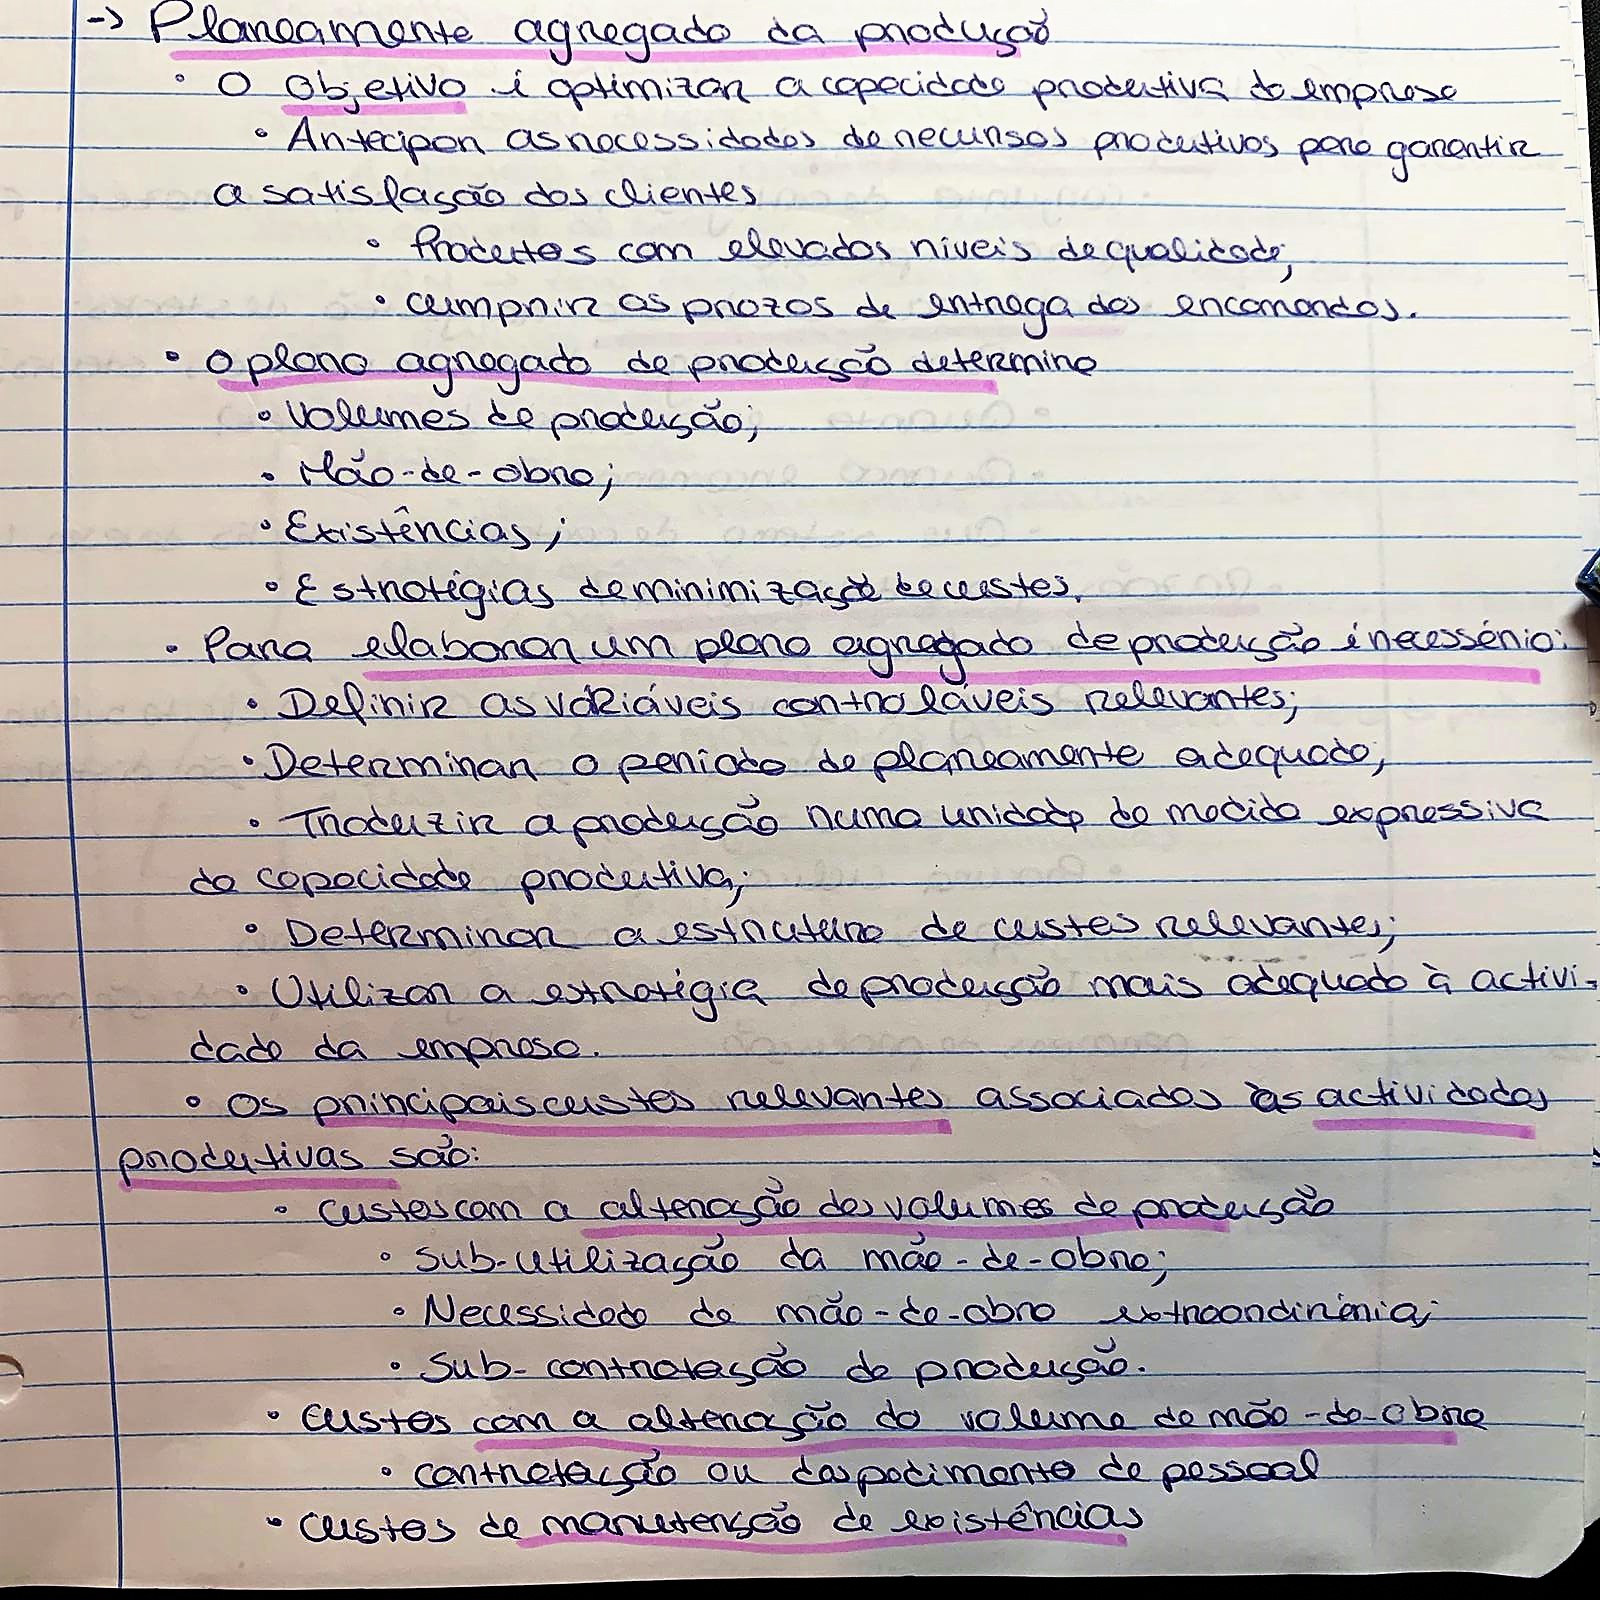 -> Planeamento agregado da produção
• O objetivo é optimizar a capacidade produtiva da empresa
• Antecipar as necessidades de recursos produtivos para garantir
a satisfação dos clientes
• Produtos com elevados níveis de qualidade;
• cumprir os prazos de entrega das encomendas.
• O plano agregado de produção determina
• Volumes de produção;
• Mão-de-obra;
• Existências;
• Estratégias de minimização de custos.
• Para elaborar um plano agregado de produção é necessário:
• Definir as variáveis controláveis relevantes;
• Determinar o período de planeamento adequado;
• Traduzir a produção numa unidade de medida expressiva
da capacidade produtiva;
• Determinar a estrutura de custos relevante;
• Utilizar a estratégia de produção mais adequada à activi-
dade da empresa.
• Os principais custos relevantes associados às actividades
produtivas são:
• Custos com a alteração dos volumes de produção
• Sub-utilização da mão-de-obra;
• Necessidade de mão-de-obra extraordinária;
• Sub-contratação de produção.
• Custos com a alteração do volume de mão-de-obra
• contratação ou despedimento de pessoal
• Custos de manutenção de existências